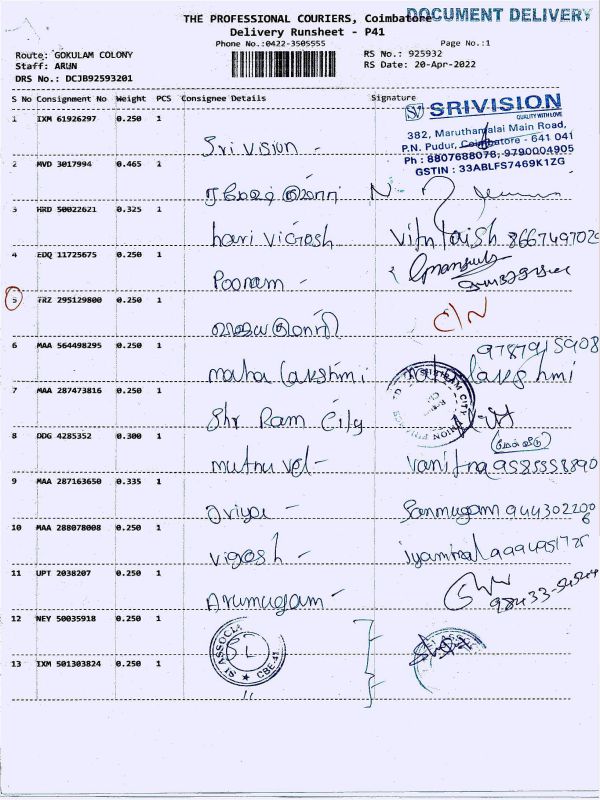 THE PROFESSIONAL COURIERS, Coimbatore
DOCUMENT DELIVERY
Delivery Runsheet - P41
Phone No.:0422-3505555
Page No.:1
Route: GOKULAM COLONY
RS No.: 925932
Staff: ARUN
RS Date: 20-Apr-2022
DRS No.: DCJB92593201
S No Consignment No Weight PCS Consignee Details Signature
SRIVISION
QUALITY WITH LOVE
382, Maruthamalai Main Road,
P.N. Pudur, Coimbatore - 641 041
Ph : 8807688078, 9790004905
GSTIN : 33ABLFS7469K1ZG
1 IXM 61926297 0.250 1
Sri vision -
2 MVD 3017994 0.465 1
3 HRD 50022621 0.325 1
hari vignesh
4 EDQ 11725675 0.250 1
Poonam -
5 TRZ 295129800 0.250 1
C/N
6 MAA 564498295 0.250 1
9787915908
maha lakshmi
7 MAA 287473816 0.250 1
Shr Ram City
8 ODG 4285352 0.300 1
muthu vel - vanitha 9585558890
9 MAA 287163650 0.335 1
Oviya - Sanmugam 9443022006
10 MAA 288078008 0.250 1
11 UPT 2038207 0.250 1
Arumugam -
12 NEY 50035918 0.250 1
SL
CBE-41
13 IXM 501303824 0.250 1